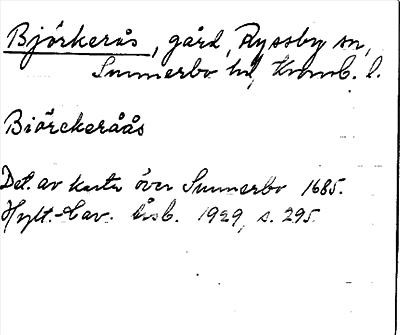 Björkerås, gård, Ryssby sn,
Sunnerbo hd, Kronob. l.
Biörckeråås
Det. av karta över Sunnerbo 1685.
Hylt.-Cav. årsb. 1929, s. 295.